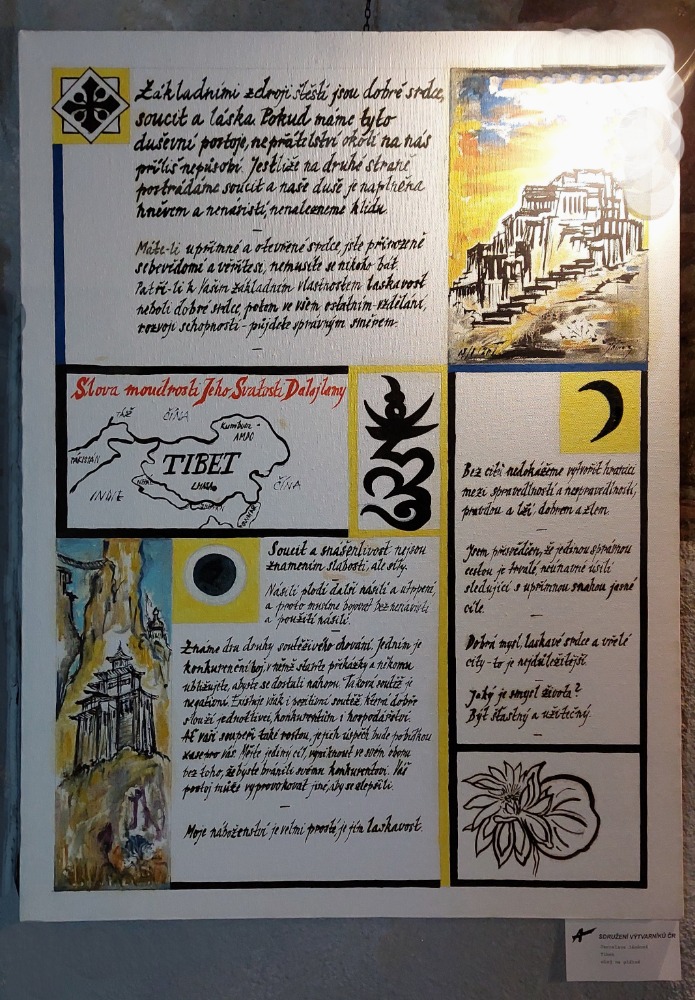 Základními zdroji štěstí jsou dobré srdce,
soucit a láska Pokud máme tyto
duševní postoje, nepřátelství okolí na nás
příliš nepůsobí. Jestliže na druhé straně
postrádáme soucit a naše duše je naplněna
hněvem a nenávistí, nenalezneme klidu.
Máte-li upřímné a otevřené srdce, jste přirozeně
sebevědomé a věřítesi, nemusíte se nikoho bát.
Patří-li k Vašim základním vlastnostem laskavost
neboli dobré srdce, potom ve všem ostatním-vzdělání,
rozvoji schopností - půjdete správným směrem.
Slova moudrosti Jeho Svatosti Dalajlamy
ČÍNA
Kumbum
AMDO
PÁKISTÁN
TIBET
LHASA
INDIE
ČÍNA
Bez citů nedokážeme vytvořit hranici
mezi spravedlností a nespravedlností,
pravdou a lží, dobrem a zlem.
Jsem přesvědčen, že jedinou správnou
cestou je trvalé, neúnavné úsilí
sledující s upřímnou snahou jasné
cíle.
Dobrá mysl, laskavé srdce a vřelé
city - to je nejdůležitější.
Jaký je smysl života?
Být šťastný a užitečný.
Soucit a snášenlivost nejsou
znamením slabosti, ale síly.
Násilí plodí další násilí a utrpení,
a proto musíme bojovat bez nenávisti
a použití násilí.
Známe dva druhy soutěživého chování. Jedním je
konkurenční boj, v němž stavíte překážky a někomu
ubližujete, abyste se dostali nahoru. Taková soutěž je
negativní Existuje však i pozitivní soutěž, která dobře
slouží jednotlivci, konkurentům i hospodářství.
Ať vaši soupeři také rostou, jejich úspěch bude pobídkou
vás. Mějte jediný cíl, vyniknout ve svém oboru
bez toho, že byste bránili svému konkurentovi. Váš
postoj může vyprovokovat jiné, aby se zlepšili.
Moje náboženství je velmi prosté, je jím laskavost.
SDRUŽENÍ VÝTVARNÍKŮ ČR